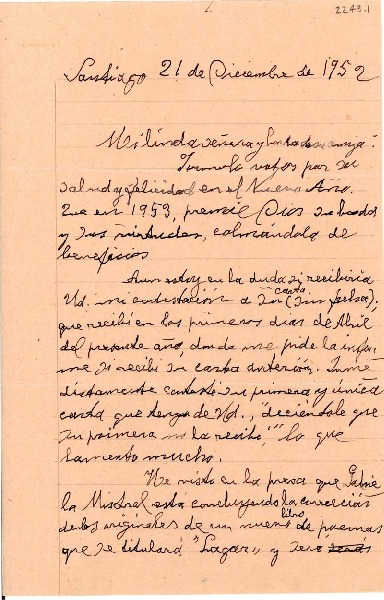 2243.1
Santiago 21 de Diciembre de 1952
Mi linda señora y amiga:
Formulo votos por su
salud y felicidad en el Nuevo Año.
Que en 1953, premie Dios su bondad
y sus virtudes, colmándola de
beneficios
Aun estoy en la duda si recibiría
Ud. mi contestación a su carta (sin fecha),
que recibí en los primeros días de Abril
del presente año, donde me pide la infor-
me si recibí su carta anterior. Inme-
diatamente contesté su primera y única
carta que tengo de Ud., diciéndole que
su primera no la recibí, lo que
lamento mucho.
He visto en la prensa que Gabrie-
la Mistral está concluyendo la corrección
de los originales de un nuevo libro de poemas
que se titulará "Lagar" y será